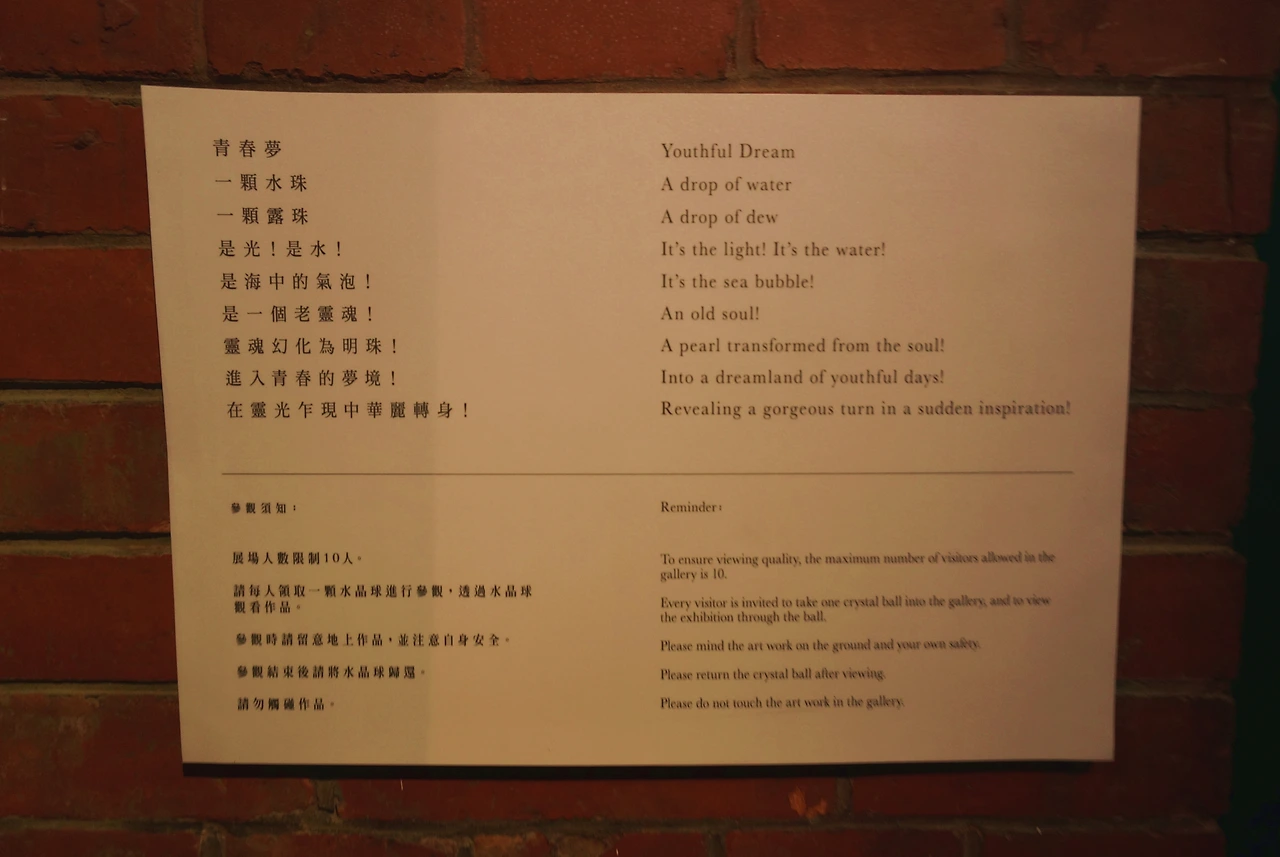 青春夢
一顆水珠
一顆露珠
是光！是水！
是海中的氣泡！
是一個老靈魂！
靈魂幻化為明珠！
進入青春的夢境！
在靈光乍現中華麗轉身！
Youthful Dream
A drop of water
A drop of dew
It's the light! It's the water!
It's the sea bubble!
An old soul!
A pearl transformed from the soul!
Into a dreamland of youthful days!
Revealing a gorgeous turn in a sudden inspiration!
參觀須知：
展場人數限制10人。
請每人領取一顆水晶球進行參觀，透過水晶球
觀看作品。
參觀時請留意地上作品，並注意自身安全。
參觀結束後請將水晶球歸還。
請勿觸碰作品。
Reminder:
To ensure viewing quality, the maximum number of visitors allowed in the
gallery is 10.
Every visitor is invited to take one crystal ball into the gallery, and to view
the exhibition through the ball.
Please mind the art work on the ground and your own safety.
Please return the crystal ball after viewing.
Please do not touch the art work in the gallery.